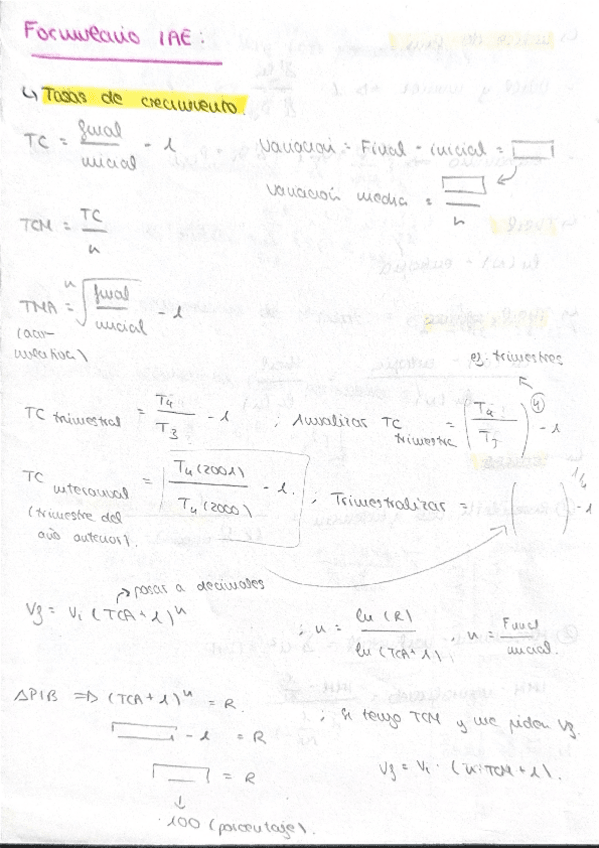 Formulario IAE:
↳ Tasas de crecimiento.
TC = final / inicial - 1
Variación = Final - inicial = ▭
Variación media = ▭ / n
TCM = TC / n
TMA = ⁿ√(final / inicial) - 1
(acumulativa)
ej: trimestres
TC trimestral = T4 / T3 - 1 ; Anualizar TC trimestre = (T4 / T3)^④ - 1
TC interanual = T4 (2001) / T4 (2000) - 1. ; Trimestralizar = ( )^1/4 - 1
(trimestre del
año anterior).
pasar a decimales
Vf = Vi (TCA + 1)^n ; n = ln (R) / ln (TCA + 1) ; R = Final / inicial.
ΔPIB ⇒ (TCA + 1)^n = R. ; Si tengo TCM y me piden Vf.
▭ - 1 = R
▭ = R
Vf = Vi · (n · TCM + 1).
↓
·100 (porcentaje).